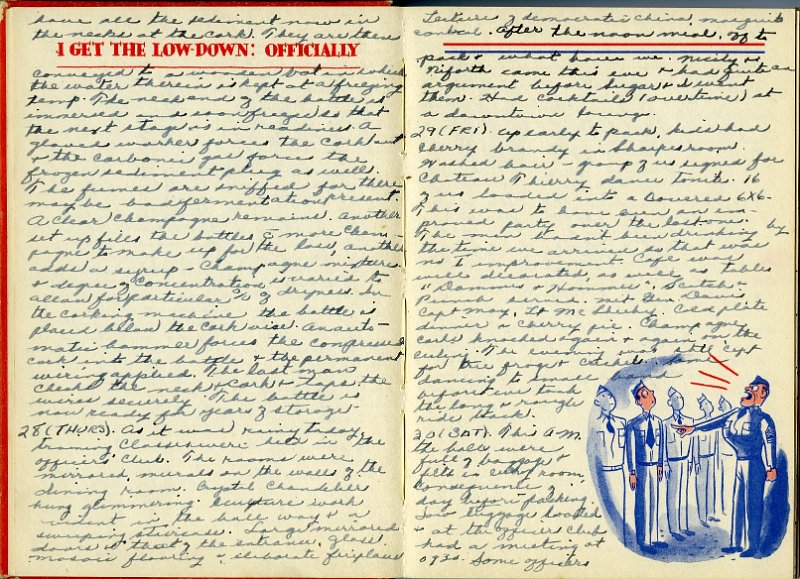 have all the sediment now in
the necks at the cork. They are then
I GET THE LOW-DOWN: OFFICIALLY
conveyed to a wooden bat in which
the water therein is kept at a freezing
temp. The neck end of the bottle is
immersed and soon freezes so that
the next stage is in readiness. A
gloved worker forces the cork out
& the carbonic gas forces the
frozen sediment plug as well.
The fumes are sniffed for there
may be bad fermentation present.
A clear champagne remains. Another
set up fills the bottles & more cham-
pagne to make up for the loss, another
adds a syrup - Champagne mixture
& degree of concentration is varied to
allow for particular % of dryness. In
the corking machine the bottle is
placed below the cork vise. An auto-
matic hammer forces the compressed
cork into the bottle & the permanent
wiring applied. The last man
checks the neck & cork & taps the
wires securely. The bottle is
now ready for years of storage
28 (THURS). As it was rainy today,
training classes were held in the
officers' Club. The rooms were
mirrored, murals on the walls of the
dining room. Crystal chandeliers
hung glimmering. Sculpture work
in the hall way & a
sweeping staircase. Large mirrored
doors at the entrance, glass
mosaic flooring & elaborate fireplaces
Lecture of democratic China, mosquito
control. After the noon meal, off to
pack & what have we. Nicely &
Niforth came this eve & had quite an
argument before Sugar & I went
then. Had cocktails (overtime) at
a downtown
29 (FRI). Up early to pack, kids had
cherry brandy in Sharpes room.
Washed hair - group of us signed for
Chateau Thierry dance tonite. 16
of us loaded into a covered 6x6.
This was to have been an im-
proved party over the last one.
The men hadn't been drinking by
the time we arrived so that was
no 1 improvement. Cafe was
well decorated, as well as tables
"Dammes & Hommes". Scotch &
Punch served. Met Gen. Davis
Capt May, Lt McSheehy. Cold plate
dinner & cherry pie. Champagne
corks knocked again & again on the
ceiling. The evening was still cept
for the frogs & crickets.
dancing to small band
before we took
the long & rough
ride back.
30 (SAT). This A.M.
the halls were
full of baggage &
belts in each room,
consequence of
day before packing.
Our luggage loaded
& at the officers club
had a meeting at
0930. Some officers